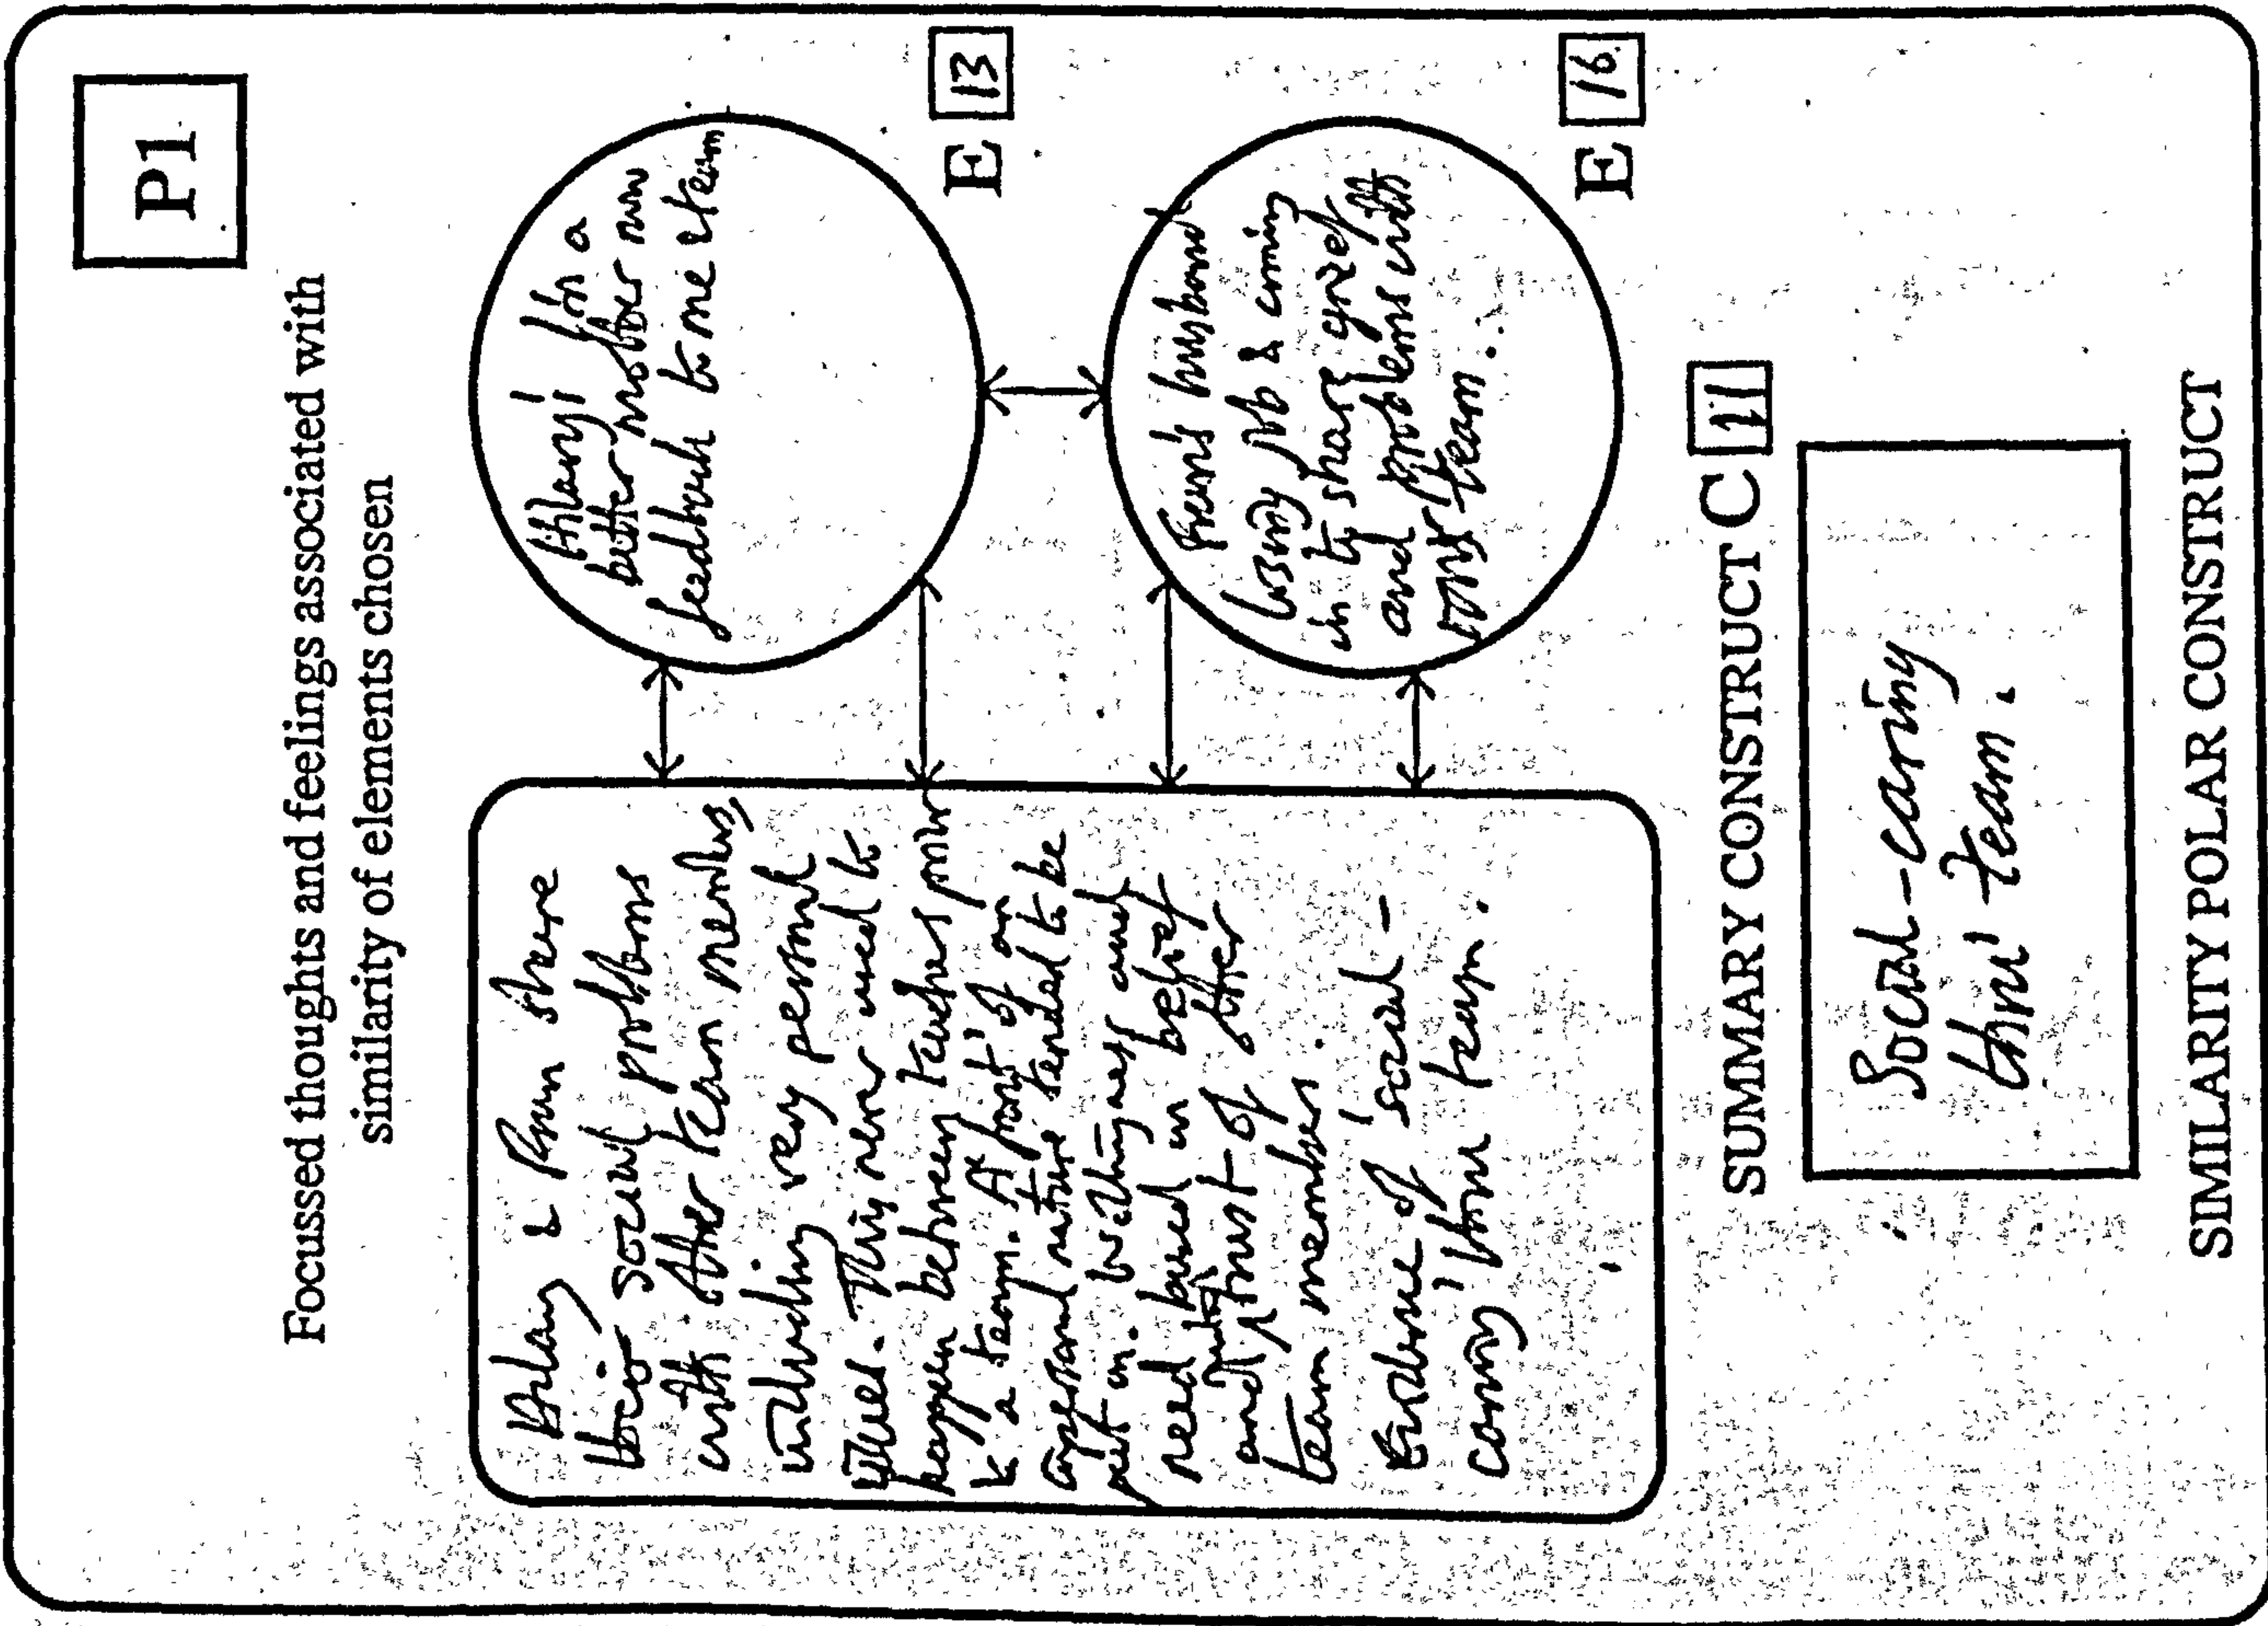 P1
Focussed thoughts and feelings associated with
similarity of elements chosen
Hilary & Pram share
their social problems
with other team members,
including very personal
ones. This never used to
happen between teachers prior
to a team. A 'front' of an
impersonal nature tended to be
put on. Willingness and
need based on belief
and trust of other
team members.
Evidence of 'social-
caring' thru' team.
Hilary! I'm a
better mother now
feedback to me & team
E 13
husband
losing job & coming
in to share grief
and problems with
team.
E 16
SUMMARY CONSTRUCT C 11
Social-caring
thru' team.
SIMILARITY POLAR CONSTRUCT